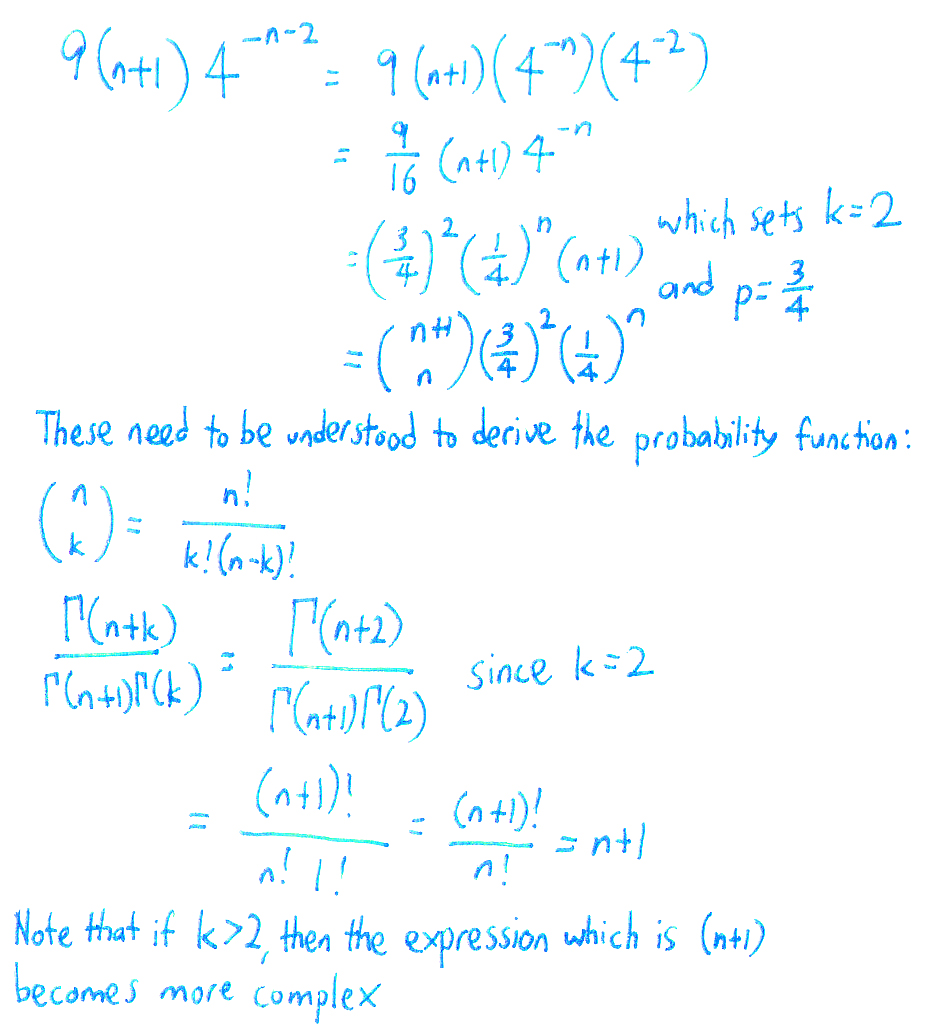 9(n+1)4^{-n-2} = 9(n+1)(4^{-n})(4^{-2})
= \frac{9}{16}(n+1)4^{-n}
= (\frac{3}{4})^2(\frac{1}{4})^n(n+1) which sets k=2
and p=\frac{3}{4}
= \binom{n+1}{n}(\frac{3}{4})^2(\frac{1}{4})^n
These need to be understood to derive the probability function:
\binom{n}{k} = \frac{n!}{k!(n-k)!}
\frac{Γ(n+k)}{Γ(n+1)Γ(k)} = \frac{Γ(n+2)}{Γ(n+1)Γ(2)} since k=2
= \frac{(n+1)!}{n! 1!} = \frac{(n+1)!}{n!} = n+1
Note that if k>2, then the expression which is (n+1)
becomes more complex